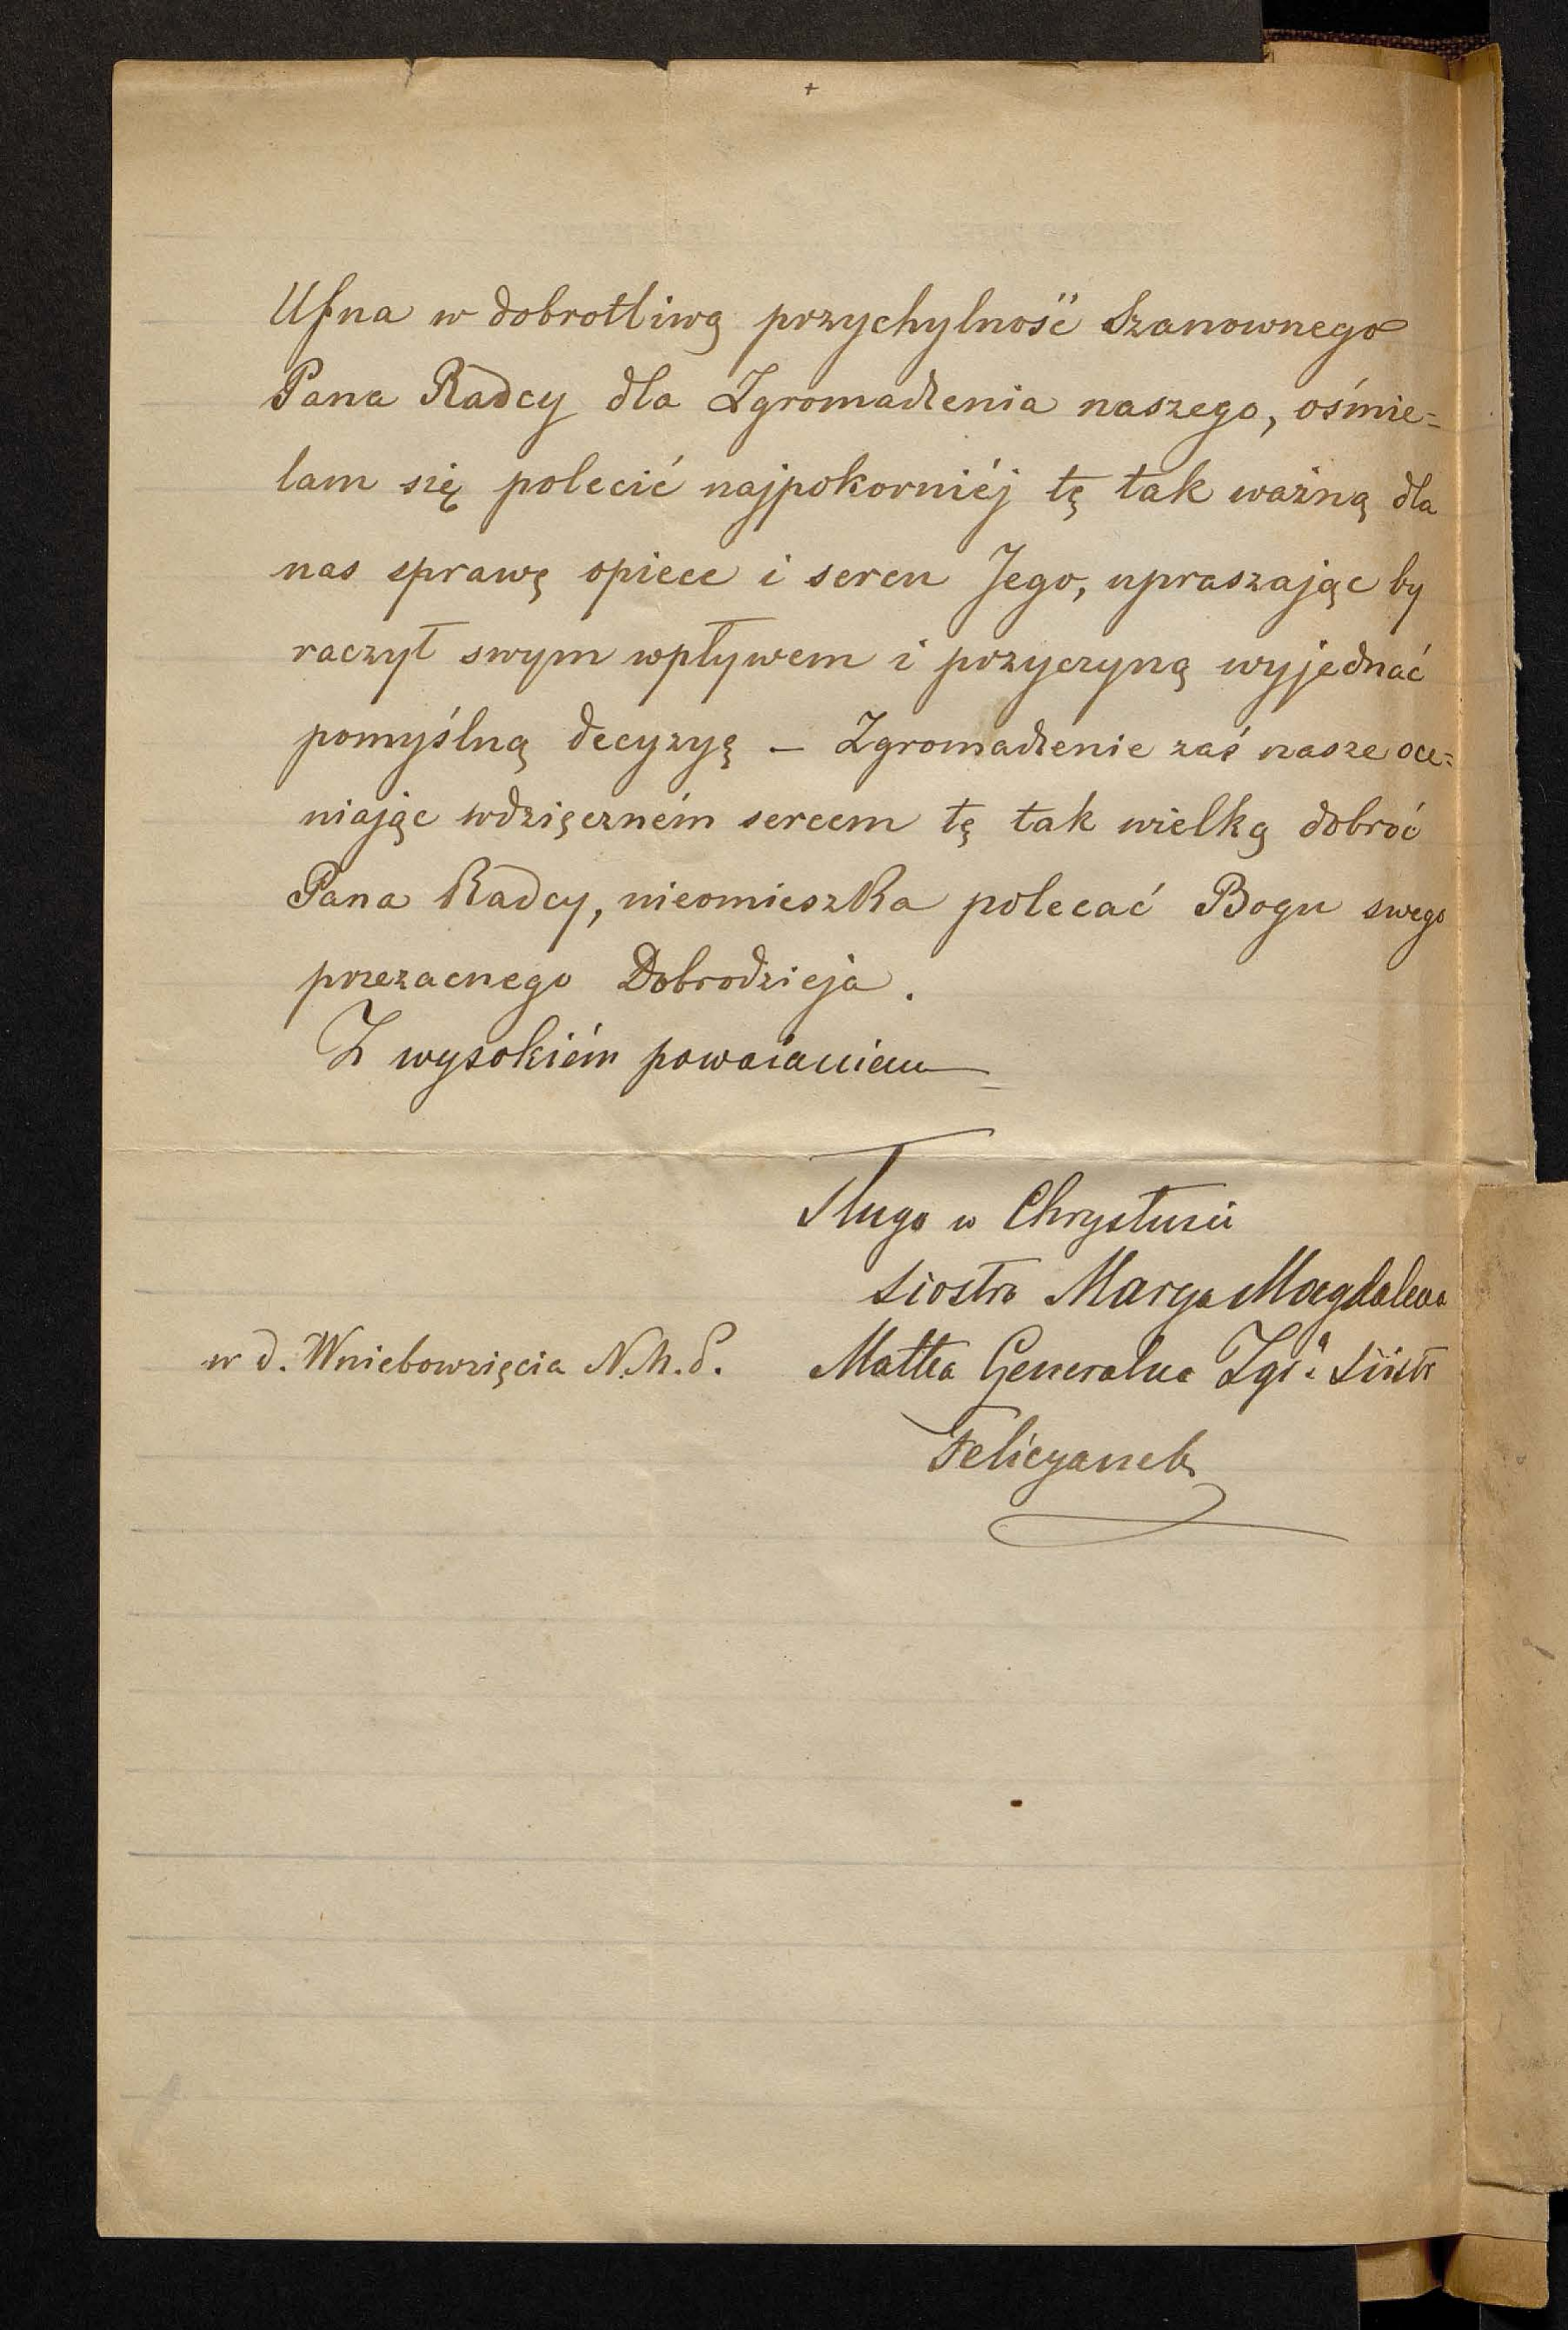 +
Ufna w dobrotliwą przychylność Szanownego
Pana Radcy dla Zgromadzenia naszego, ośmie=
lam się polecić najpokorniéj tę tak ważną dla
nas sprawę opiece i sercu Jego, upraszając by
raczył swym wpływem i przyczyną wyjednać
pomyślną decyzyę – Zgromadzenie zaś nasze oce=
niając wdzięczném sercem tę tak wielką dobroć
Pana Radcy, nieomieszka polecać Bogu swego
przezacnego Dobrodzieja.
Z wysokiém poważaniem
Sługa w Chrystusie
siostra Marya Magdalena
w d. Wniebowzięcia N.M.P. Matka Generalna Zgr. Sióstr
Felicyanek